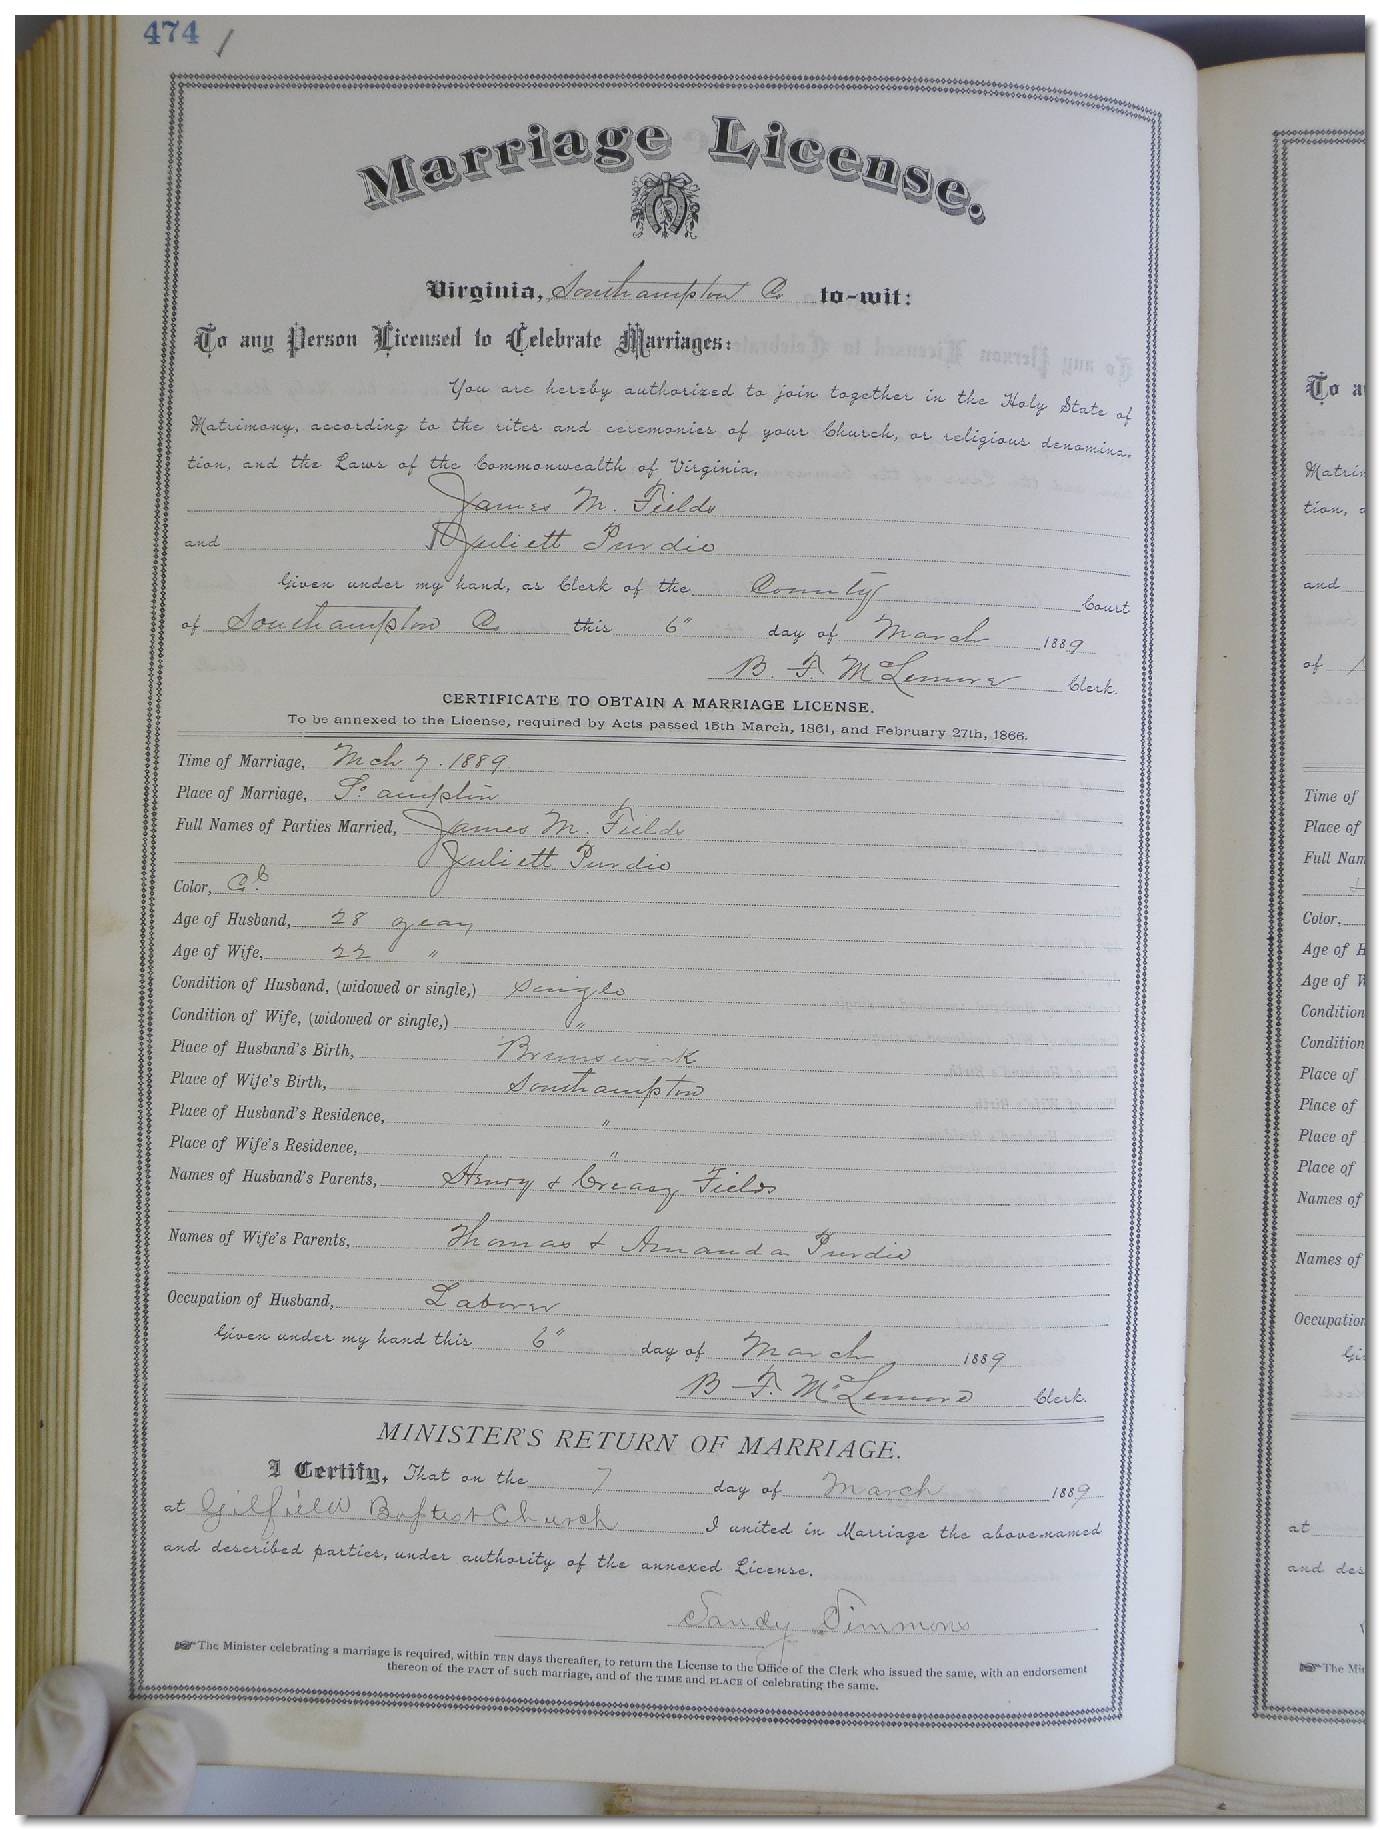 474 /
Marriage License.
Virginia, Southampton Co to-wit:
To any Person Licensed to Celebrate Marriages:
You are hereby authorized to join together in the Holy State of
Matrimony, according to the rites and ceremonies of your Church, or religious denomina-
tion, and the Laws of the Commonwealth of Virginia,
James M. Fields
and Juliett Purdie
Given under my hand, as Clerk of the County Court
of Southampton Co this 6" day of March 1889
B. F. McLemore Clerk.
CERTIFICATE TO OBTAIN A MARRIAGE LICENSE.
To be annexed to the License, required by Acts passed 15th March, 1861, and February 27th, 1866.
Time of Marriage, Mch 7. 1889
Place of Marriage, So ampton
Full Names of Parties Married, James M. Fields
Juliett Purdie
Color, Cd
Age of Husband, 28 years
Age of Wife, 22 "
Condition of Husband, (widowed or single,) single
Condition of Wife, (widowed or single,) "
Place of Husband's Birth, Brunswick
Place of Wife's Birth, Southampton
Place of Husband's Residence, "
Place of Wife's Residence, "
Names of Husband's Parents, Henry & Creasy Fields
Names of Wife's Parents, Thomas & Amanda Purdie
Occupation of Husband, Laborer
Given under my hand this 6" day of March 1889
B F. McLemore Clerk.
MINISTER'S RETURN OF MARRIAGE.
I Certify, That on the 7 day of March 1889
at Gilfield Baptest Church I united in Marriage the above-named
and described parties, under authority of the annexed License.
Sandy Simmons
☞The Minister celebrating a marriage is required, within TEN days thereafter, to return the License to the Office of the Clerk who issued the same, with an endorsement
thereon of the FACT of such marriage, and of the TIME and PLACE of celebrating the same.
To a
Matrim
tion, a
and
of
Time of
Place of
Full Nam
Color,
Age of H
Age of W
Condition
Condition
Place of
Place of
Place of
Place of
Names of
Names of
Occupation
Gi
at
and des
☞The Mi